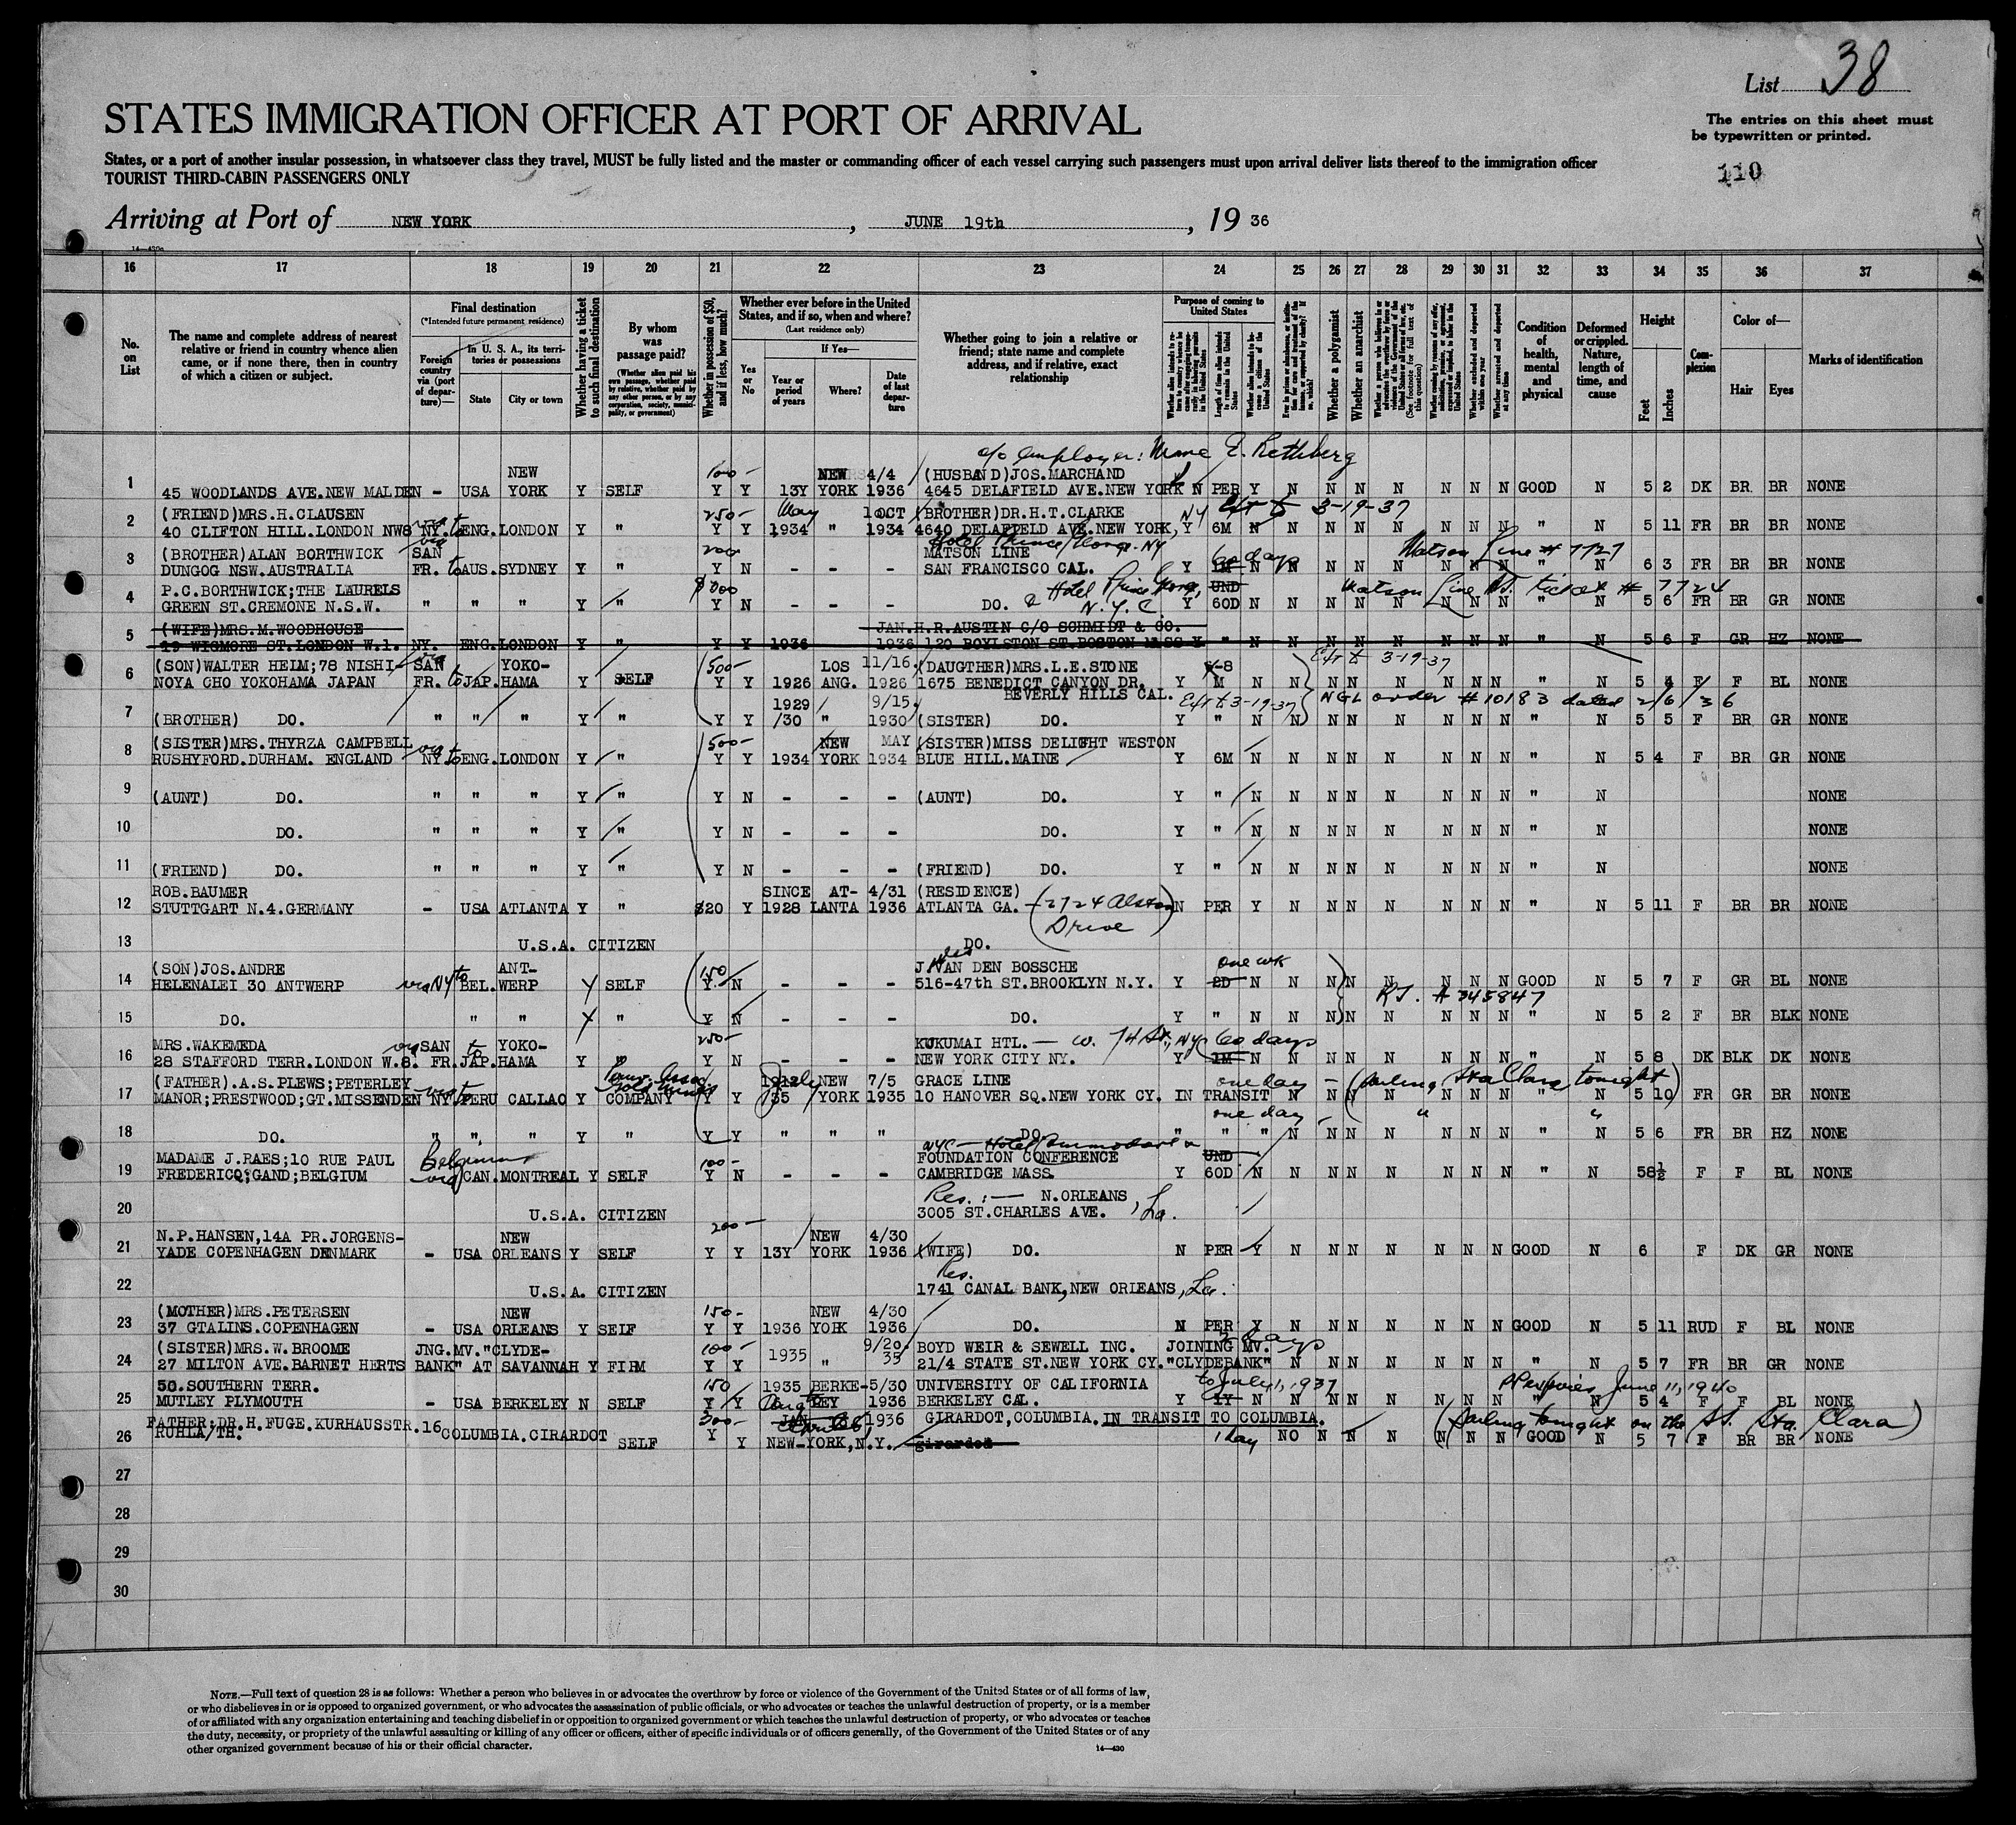 List 38
STATES IMMIGRATION OFFICER AT PORT OF ARRIVAL
The entries on this sheet must
be typewritten or printed.
States, or a port of another insular possession, in whatsoever class they travel, MUST be fully listed and the master or commanding officer of each vessel carrying such passengers must upon arrival deliver lists thereof to the immigration officer
TOURIST THIRD-CABIN PASSENGERS ONLY
110
Arriving at Port of NEW YORK, JUNE 19th, 19 36
16 17 18 19 20 21 22 23 24 25 26 27 28 29 30 31 32 33 34 35 36 37
No. on List
The name and complete address of nearest relative or friend in country whence alien came, or if none there, then in country of which a citizen or subject.
Final destination
(*Intended future permanent residence)
Foreign country via (port of departure)—
In U. S. A., its territories or possessions
State
City or town
Whether having a ticket to such final destination
By whom was passage paid?
(Whether alien paid his own passage, whether paid by relative, whether paid by any other person, or by any corporation, society, municipality, or government)
Whether in possession of $50, and if less, how much?
Whether ever before in the United States, and if so, when and where?
(Last residence only)
If Yes—
Yes or No
Year or period of years
Where?
Date of last departure
Whether going to join a relative or friend; state name and complete address, and if relative, exact relationship
Purpose of coming to United States
Length of time alien intends to remain in the United States
Whether alien intends to become a citizen of the United States
Whether a polygamist
Whether an anarchist
(See footnote for full text of this question)
Whether arrested and deported at any time
Condition of health, mental and physical
Deformed or crippled. Nature, length of time, and cause
Height
Feet
Inches
Complexion
Color of—
Hair
Eyes
Marks of identification
c/o employer: Mme E. Rethberg
NEW 100- NEW 4/4 (HUSBAND)JOS.MARCHAND
1 45 WOODLANDS AVE.NEW MALDEN - USA YORK Y SELF Y Y 13Y YORK 1936 4645 DELAFIELD AVE.NEW YORK N PER Y N N N N N N N GOOD N 5 2 DK BR BR NONE
(FRIEND)MRS.H.CLAUSEN 250- May 10CT (BROTHER)DR.H.T.CLARKE NY Ext to 3-19-37
2 40 CLIFTON HILL.LONDON NW8 NY. to ENG.LONDON Y " Y Y 1934 " 1934 4640 DELAFIELD AVE.NEW YORK, Y 6M N N N N N N N N " N 5 11 FR BR BR NONE
Hotel Prince George-NY
(BROTHER)ALAN BORTHWICK via SAN 200 MATSON LINE 60 days Matson Line # 7727
3 DUNGOG NSW.AUSTRALIA FR. to AUS.SYDNEY Y " Y N - - - SAN FRANCISCO CAL. Y 1M N N N N N N N N " N 6 3 FR BR BR NONE
P.C.BORTHWICK;THE LAURELS Hotel Prince George, UND Matson Line ticket # 7724
4 GREEN ST.CREMONE N.S.W. " " " Y " Y N - - - DO. N.Y.C. Y 60D N N N N N N N N " N 5 6 FR BR GR NONE
(WIFE)MRS.M.WOODHOUSE JAN.H.R.AUSTIN C/O SCHMIDT & CO.
5 19 WIGMORE ST.LONDON W.1. NY. ENG.LONDON Y " Y Y 1936 1936 120 BOYLSTON ST.BOSTON MASS Y " N N N N N N N N " N 5 6 F GR HZ NONE
(SON)WALTER HEIM;78 NISHI- SAN YOKO- 500- LOS 11/16 (DAUGTHER)MRS.L.E.STONE Y-8 Ext to 3-19-37
6 NOYA CHO YOKOHAMA JAPAN FR. to JAP.HAMA Y SELF Y Y 1926 ANG. 1926 1675 BENEDICT CANYON DR. Y M N N N N N N N N " N 5 4 F F BL NONE
BEVERLY HILLS CAL. Ext to 3-19-37 NGL order #10183 dated 2/6/36
1929 9/15
7 (BROTHER) DO. " " " Y " Y Y /30 " 1930 (SISTER) DO. Y " N N N N N N N N " N 5 5 F BR GR NONE
(SISTER)MRS.THYRZA CAMPBELL via 500- NEW MAY (SISTER)MISS DELIGHT WESTON
8 RUSHYFORD.DURHAM. ENGLAND NY to ENG.LONDON Y " Y Y 1934 YORK 1934 BLUE HILL.MAINE Y 6M N N N N N N N N " N 5 4 F BR GR NONE
9 (AUNT) DO. " " " Y " Y N - - - (AUNT) DO. Y " N N N N N N N N " N NONE
10 DO. " " " Y " Y N - - - DO. Y " N N N N N N N N " N NONE
11 (FRIEND) DO. " " " Y " Y N - - - (FRIEND) DO. Y " N N N N N N N N " N NONE
ROB.BAUMER SINCE AT- 4/31 (RESIDENCE)
12 STUTTGART N.4.GERMANY - USA ATLANTA Y " $20 Y 1928 LANTA 1936 ATLANTA GA. - (2724 Alston Drive) N PER Y N N N N N N N " N 5 11 F BR BR NONE
13 U.S.A. CITIZEN DO.
(SON)JOS.ANDRE ANT- 150 J.VAN DEN BOSSCHE one wk
14 HELENALEI 30 ANTWERP via NY to BEL.WERP Y SELF Y N - - - 516-47th ST.BROOKLYN N.Y. Y 2D N N N N N N N N GOOD N 5 7 F GR BL NONE
R.T. A 345847
15 DO. " " Y " Y N - - - DO. Y " N N N N N N N N " N 5 2 F BR BLK NONE
MRS.WAKEMEDA via SAN to YOKO- 250- KUKUMAI HTL. - W. 74 St., NYC 60 days
16 28 STAFFORD TERR.LONDON W.8. FR.JAP.HAMA Y " Y N - - - NEW YORK CITY NY. Y 1M N N N N N N N N " N 5 8 DK BLK DK NONE
(FATHER).A.S.PLEWS;PETERLEY via NEW 7/5 GRACE LINE one day - (sailing Sta Clara tonight)
17 MANOR;PRESTWOOD;GT.MISSENDEN NY to PERU CALLAO Y COMPANY Y Y 35 YORK 1935 10 HANOVER SQ.NEW YORK CY. IN TRANSIT N N N N N N N " N 5 10 FR GR BR NONE
one day - " "
18 DO. " " " Y " Y Y " " " DO. " " " N N N N N N N " N 5 6 FR BR HZ NONE
NYC - Hotel Commodore
MADAME J.RAES;10 RUE PAUL Belgium 100- FOUNDATION CONFERENCE UND
19 FREDERICQ;GAND;BELGIUM via CAN.MONTREAL Y SELF Y N - - - CAMBRIDGE MASS. Y 60D N N N N N N N N " N 5 8½ F F BL NONE
Res.: - N.ORLEANS, La.
20 U.S.A. CITIZEN 3005 ST.CHARLES AVE.
N.P.HANSEN,14A PR.JORGENS- NEW 200- NEW 4/30
21 YADE COPENHAGEN DENMARK - USA ORLEANS Y SELF Y Y 13Y YORK 1936 (WIFE) DO. N PER Y N N N N N N N GOOD N 6 F DK GR NONE
Res.
22 U.S.A. CITIZEN 1741 CANAL BANK,NEW ORLEANS, La.
(MOTHER)MRS.PETERSEN NEW 150- NEW 4/30
23 37 GTALINS.COPENHAGEN - USA ORLEANS Y SELF Y Y 1936 YORK 1936 DO. N PER Y N N N N N N N GOOD N 5 11 RUD F BL NONE
(SISTER)MRS.W.BROOME JNG.MV."CLYDE- 100- 1935 9/20 BOYD WEIR & SEWELL INC. JOINING MV. days
24 27 MILTON AVE.BARNET HERTS BANK" AT SAVANNAH Y FIRM Y Y " 35 21/4 STATE ST.NEW YORK CY."CLYDEBANK" N N N N N N N " N 5 7 FR BR GR NONE
50.SOUTHERN TERR. 150 1935 BERKE- 5/30 UNIVERSITY OF CALIFORNIA to July 1, 1937 PP expires June 11, 1940
25 MUTLEY PLYMOUTH - USA BERKELEY N SELF Y Y LEY 1936 BERKELEY CAL. Y 1Y N N N N N N N N " N 5 4 F F BL NONE
FATHER;DR.H.FUGE.KURHAUSSTR.16 300- JAN 1936 GIRARDOT,COLUMBIA.IN TRANSIT TO COLUMBIA. (sailing tonight on the SS. Sta. Clara)
26 RUHLA/TH. COLUMBIA.CIRARDOT SELF Y Y NEW-YORK,N.Y. girardod 1 day NO N N N N N N GOOD N 5 7 F BR BR NONE
27
28
29
30
NOTE.—Full text of question 28 is as follows: Whether a person who believes in or advocates the overthrow by force or violence of the Government of the United States or of all forms of law,
or who disbelieves in or is opposed to organized government, or who advocates the assassination of public officials, or who advocates or teaches the unlawful destruction of property, or is a member
of or affiliated with any organization entertaining and teaching disbelief in or opposition to organized government or which teaches the unlawful destruction of property, or who advocates or teaches
the duty, necessity, or propriety of the unlawful assaulting or killing of any officer or officers, either of specific individuals or of officers generally, of the Government of the United States or of any
other organized government because of his or their official character.
14—430